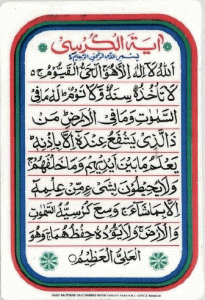 اية الكرسي
بسم الله الرحمن الرحيم
اَللّٰهُ لَآ اِلٰهَ اِلَّا هُوَ الْحَيُّ الْقَيُّوْمُ ج
لَا تَأْخُذُهٗ سِنَةٌ وَّلَا نَوْمٌ ط لَهٗ مَا فِي
السَّمٰوٰتِ وَمَا فِي الْاَرْضِ ط مَنْ
ذَا الَّذِيْ يَشْفَعُ عِنْدَهٗٓ اِلَّا بِاِذْنِهٖ ط
يَعْلَمُ مَا بَيْنَ اَيْدِيْهِمْ وَمَا خَلْفَهُمْ ج
وَلَا يُحِيْطُوْنَ بِشَيْءٍ مِّنْ عِلْمِهٖٓ
اِلَّا بِمَا شَآءَ ج وَسِعَ كُرْسِيُّهُ السَّمٰوٰتِ
وَالْاَرْضَ ج وَلَا يَـُٔوْدُهٗ حِفْظُهُمَا ج وَهُوَ
الْعَلِيُّ الْعَظِيْمُ